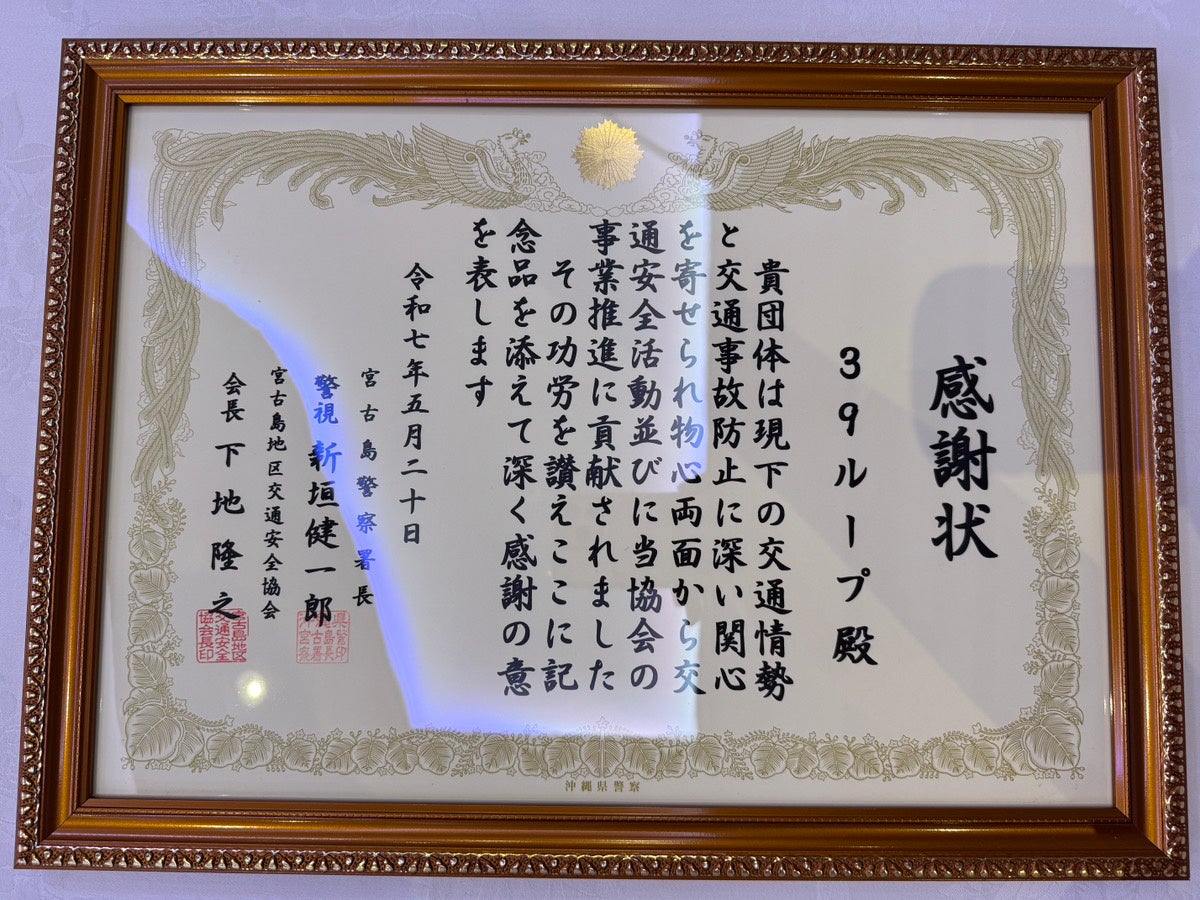 感謝状
39ループ殿
貴団体は現下の交通情勢
と交通事故防止に深い関心
を寄せられ物心両面から交
通安全活動並びに当協会の
事業推進に貢献されました
その功労を讃えここに記
念品を添えて深く感謝の意
を表します
令和七年五月二十日
宮古島警察署長
警視 新垣健一郎
宮古島地区交通安全協会
会長 下地隆之
宮古島地区
交通安全
協会長印
沖縄県警察